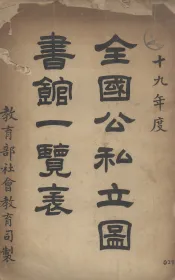 十九年度
全國公私立圖
書館一覽表
教育部社會教育司製